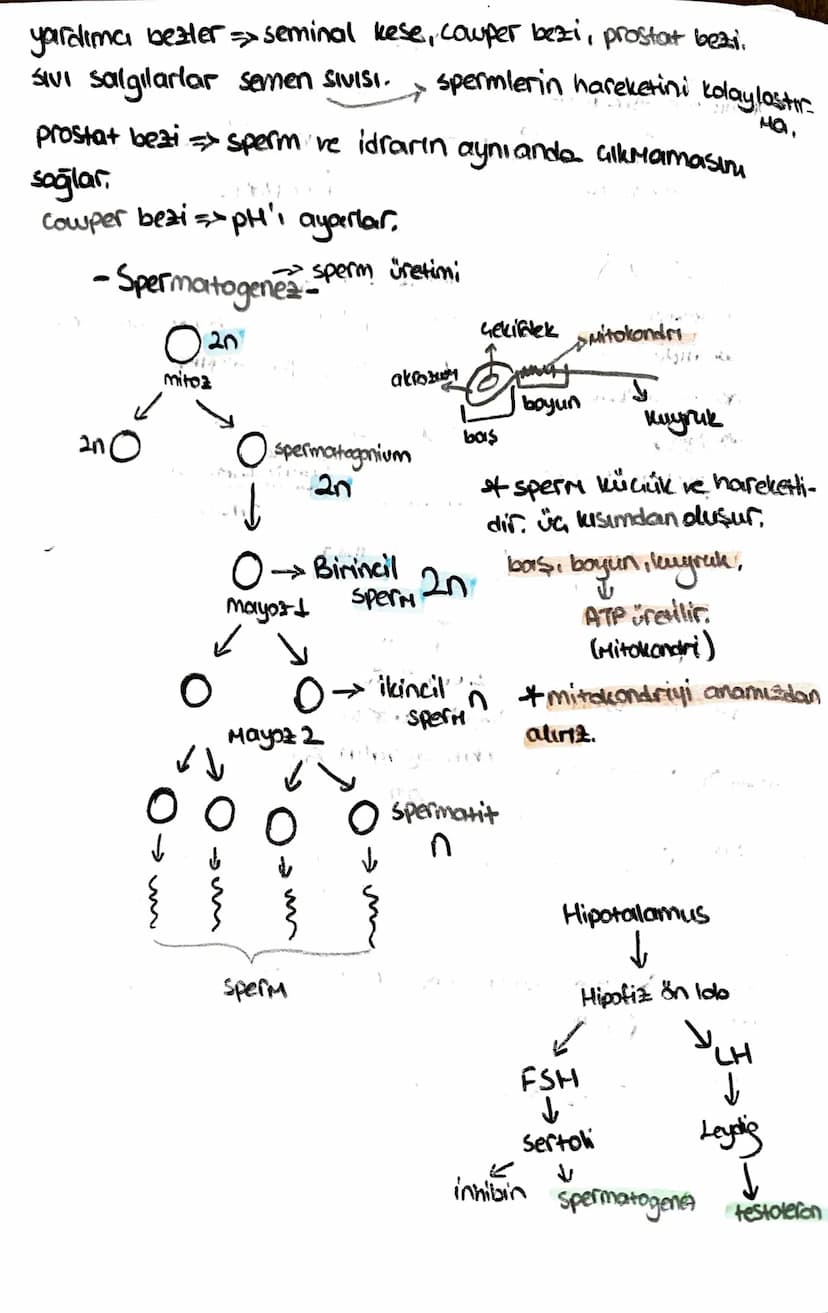 yardımcı bezler => seminal kese, cowper bezi, prostat bezi.
sıvı salgılarlar semen sıvısı. → spermlerin hareketini kolaylaştır-
ma.
prostat bezi => sperm ve idrarın aynıanda çıkmamasını
sağlar.
Cowper bezi => pH'ı ayarlar.
- Spermatogenez - → sperm üretimi
2n
mitoz
2n
spermatogonium
2n
→ Birincil
sperm 2n
Mayoz 1
→ ikincil n
sperm
Mayoz 2
spermatit
n
sperm
çekirdek
mitokondri
akrozom
boyun
baş
kuyruk
* sperm küçük ve hareketli-
dir. üç kısımdan oluşur.
baş, boyun, kuyruk,
ATP üretilir.
(Mitokondri)
* mitokondriyi anamızdan
alırız.
Hipotalamus
Hipofiz ön lob
FSH
LH
Sertoli
Leydig
inhibin
spermatogenez
testoteron